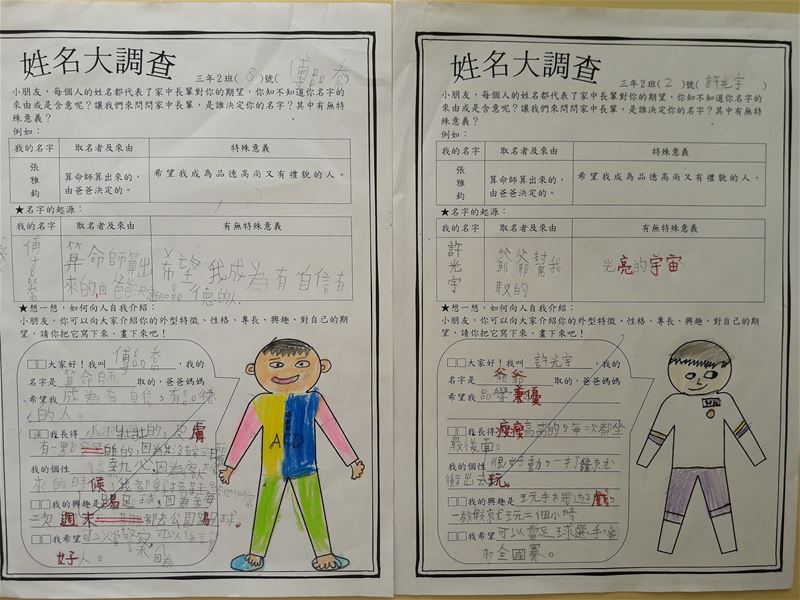 姓名大調查
三年2班(8)號(傅品喬)
小朋友，每個人的姓名都代表了家中長輩對你的期望，你知不知道你名字的
來由或是含意呢？讓我們來問問家中長輩，是誰決定你的名字？其中有無特
殊意義？
例如：
我的名字 取名者及來由 特殊意義
張雅鈞 算命師算出來的，由爸爸決定的。 希望我成為品德高尚又有禮貌的人。
★名字的起源：
我的名字 取名者及來由 有無特殊意義
算命師算出來的,由爸爸決定 希望我成為有自信有德的
★想一想，如何向人自我介紹：
小朋友，你可以向大家介紹你的外型特徵、性格、專長、興趣、對自己的期
望，請你把它寫下來、畫下來吧！
□□大家好！我叫 傅品喬 ，我的
名字是 算命師 取的，爸爸媽媽
希望我 成為有自信,有品德
的人。
□□我長得 小小壯壯的,皮膚
有一點
我的個性 很熱心,因為客人
來的時候,我都會
□□我的興趣是 踢足球,因為我每
一次週末 都去公園踢足球。
□□我希望 可以當警察,可以保
好人。
ACD
姓名大調查
三年2班(2)號(許光宇)
小朋友，每個人的姓名都代表了家中長輩對你的期望，你知不知道你名字的
來由或是含意呢？讓我們來問問家中長輩，是誰決定你的名字？其中有無特
殊意義？
例如：
我的名字 取名者及來由 特殊意義
張雅鈞 算命師算出來的，由爸爸決定的。 希望我成為品德高尚又有禮貌的人。
★名字的起源：
我的名字 取名者及來由 有無特殊意義
許光宇 爺爺幫我取的 光亮的宇宙
★想一想，如何向人自我介紹：
小朋友，你可以向大家介紹你的外型特徵、性格、專長、興趣、對自己的期
望，請你把它寫下來、畫下來吧！
□□大家好！我叫 許光宇 ，我的
名字是 爺爺 取的，爸爸媽媽
希望我 品學兼優
□□我長得 瘦瘦高高的,每次都坐
最後面。
我的個性 很好動,一打鐘就
衝出去玩。
□□我的興趣是 玩手機遊戲
一放假就玩一個小時
□□我希望 可以當足球選手,參
加全國賽。